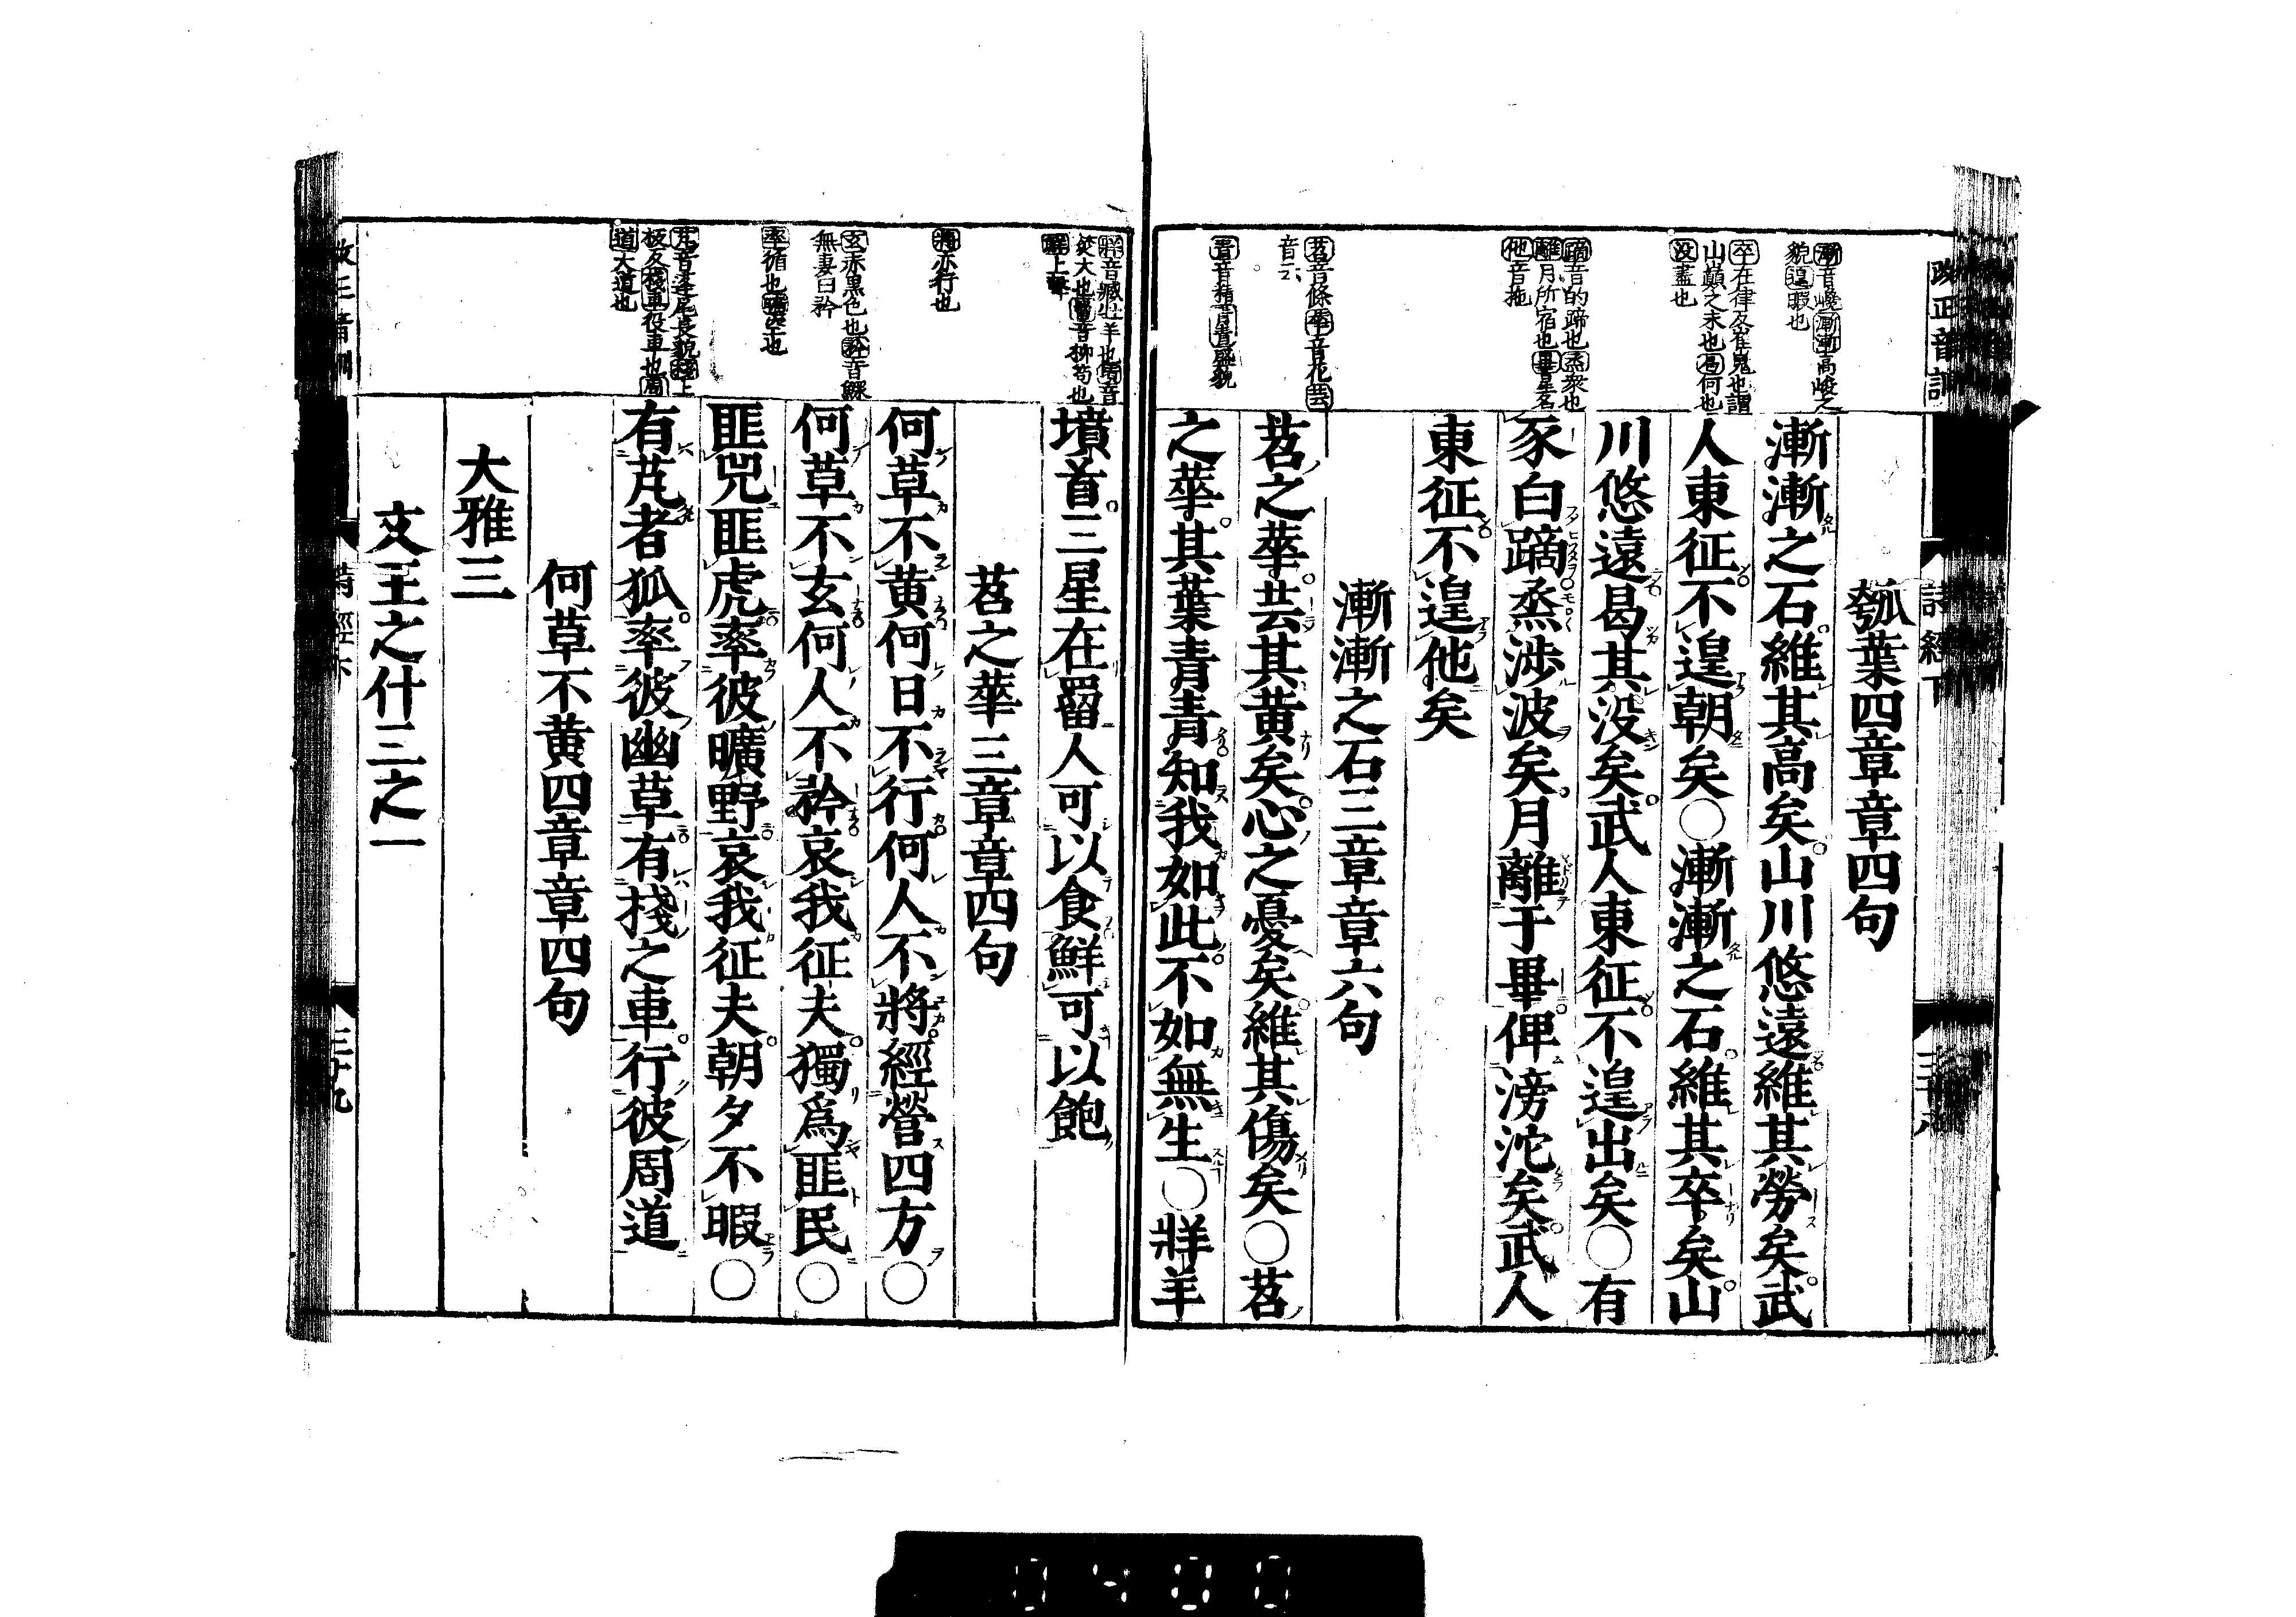 改正音訓
詩經下
三十八
漸音巉漸漸高峻之
貌遑暇也
卒在律反崔嵬也謂
山巓之末也曷何也
没盡也
蹢音的蹄也烝衆也
離月所宿也畢星名
他音拖
苕音條華音花芸
音云
青音精青青盛貌
瓠葉四章章四句
漸漸之石維其高矣山川悠遠維其勞矣武
人東征不遑朝矣○漸漸之石維其卒矣山
川悠遠曷其没矣武人東征不遑出矣○有
豕白蹢烝涉波矣月離于畢俾滂沱矣武人
東征不遑他矣
漸漸之石三章章六句
苕之華芸其黃矣心之憂矣維其傷矣○苕
之華其葉青青知我如此不如無生○牂羊
牂音臧牝羊也墳音
焚大也罶音柳笱也
鮮上聲
將亦行也
玄赤黑色也矜音鰥
無妻曰矜
率循也曠空也
芃音蓬尾長貌棧上
板反棧車役車也周
道大道也
墳首三星在罶人可以食鮮可以飽
苕之華三章章四句
何草不黃何日不行何人不將經營四方○
何草不玄何人不矜哀我征夫獨爲匪民○
匪兕匪虎率彼曠野哀我征夫朝夕不暇○
有芃者狐率彼幽草有棧之車行彼周道
何草不黃四章章四句
大雅三
文王之什三之一
改正音訓
詩經下
三十九
0400